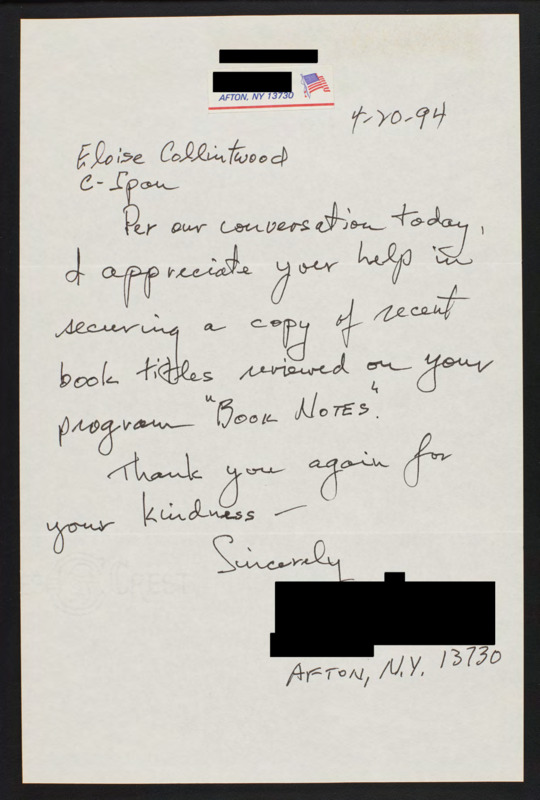 AFTON, NY 13730
4-20-94
Eloise Collintwood
C-Span
Per our conversation today,
I appreciate your help in
securing a copy of recent
book titles reviewed on your
program "Book Notes".
Thank you again for
your kindness —
Sincerely
AFTON, N.Y. 13730